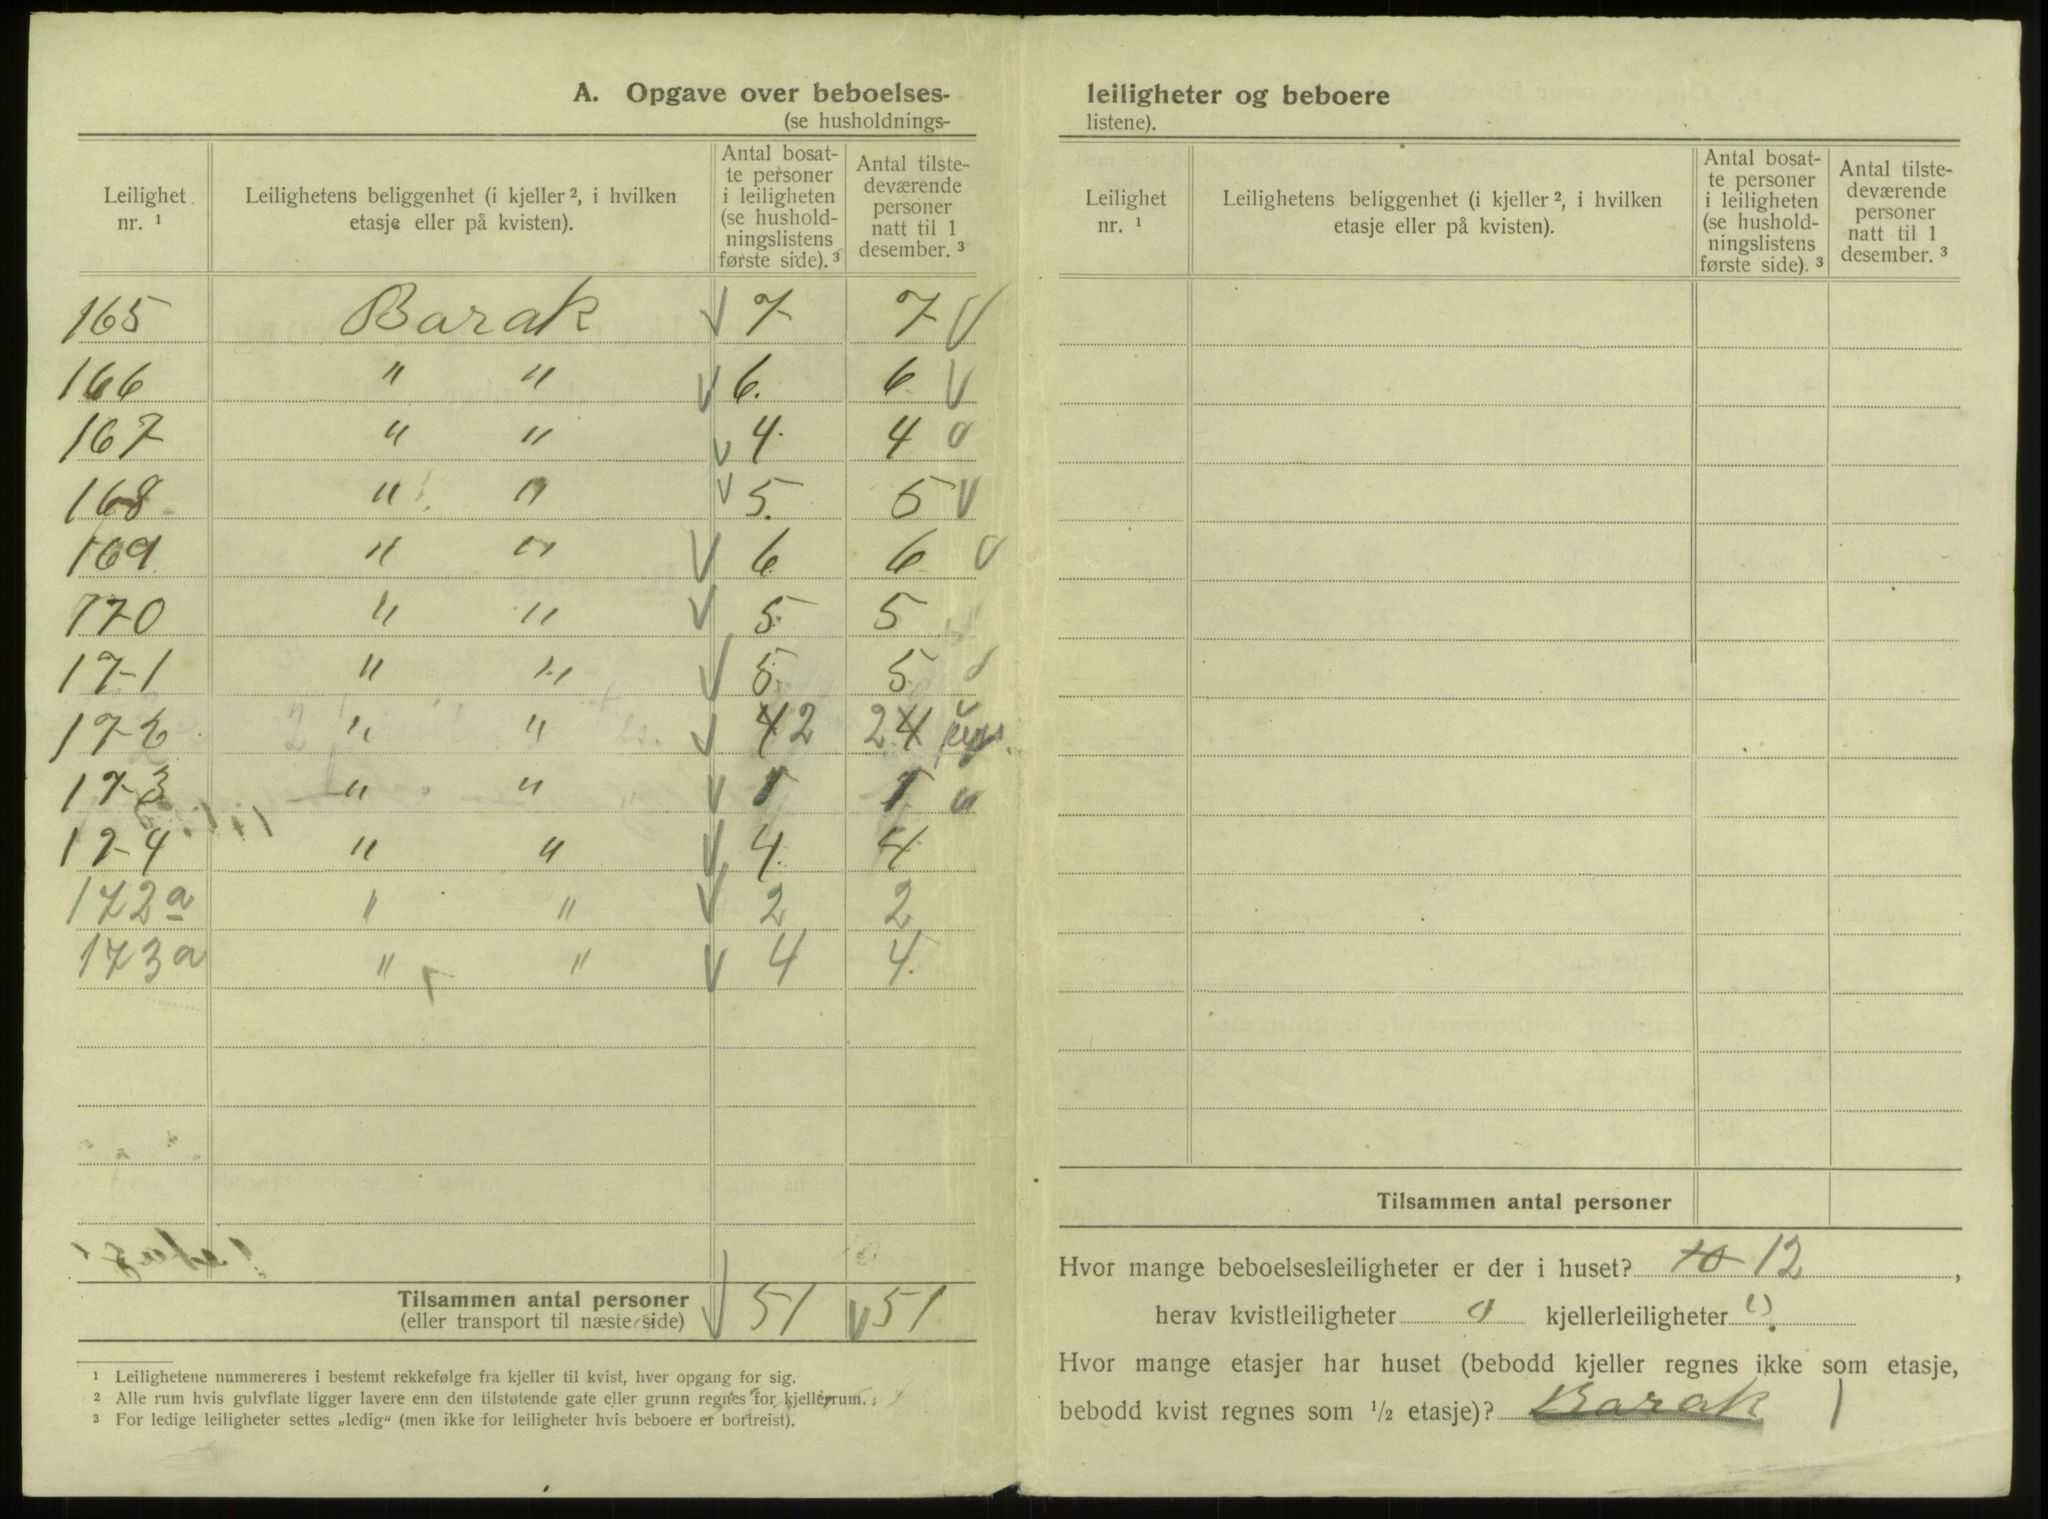 A. Opgave over beboelses-
(se husholdnings-
Leilighet nr. ¹
Leilighetens beliggenhet (i kjeller ², i hvilken etasje eller på kvisten).
Antal bosat-
te personer
i leiligheten
(se hushold-
ningslistens
første side). ³
Antal tilste-
deværende
personer
natt til 1
desember. ³
165 Barak 7 7
166 " " 6. 6
167 " " 4 4
168 " " 5. 5
169 " " 6 6
170 " " 5 5
171 " " 5 5
172 " " 4 2 2 4
173 " "
174 " " 4 4
172a " " 2 2
173a " " 4 4
Tilsammen antal personer 51 51
(eller transport til næste side)
¹ Leilighetene nummereres i bestemt rekkefølge fra kjeller til kvist, hver opgang for sig.
² Alle rum hvis gulvflate ligger lavere enn den tilstøtende gate eller grunn regnes for kjellerrum.
³ For ledige leiligheter settes „ledig“ (men ikke for leiligheter hvis beboere er bortreist).
leiligheter og beboere
listene).
Leilighet nr. ¹
Leilighetens beliggenhet (i kjeller ², i hvilken etasje eller på kvisten).
Antal bosat-
te personer
i leiligheten
(se hushold-
ningslistens
første side). ³
Antal tilste-
deværende
personer
natt til 1
desember. ³
Tilsammen antal personer
Hvor mange beboelsesleiligheter er der i huset? 10 12,
herav kvistleiligheter 0 kjellerleiligheter 0
Hvor mange etasjer har huset (bebodd kjeller regnes ikke som etasje,
bebodd kvist regnes som ½ etasje)? Barak 1